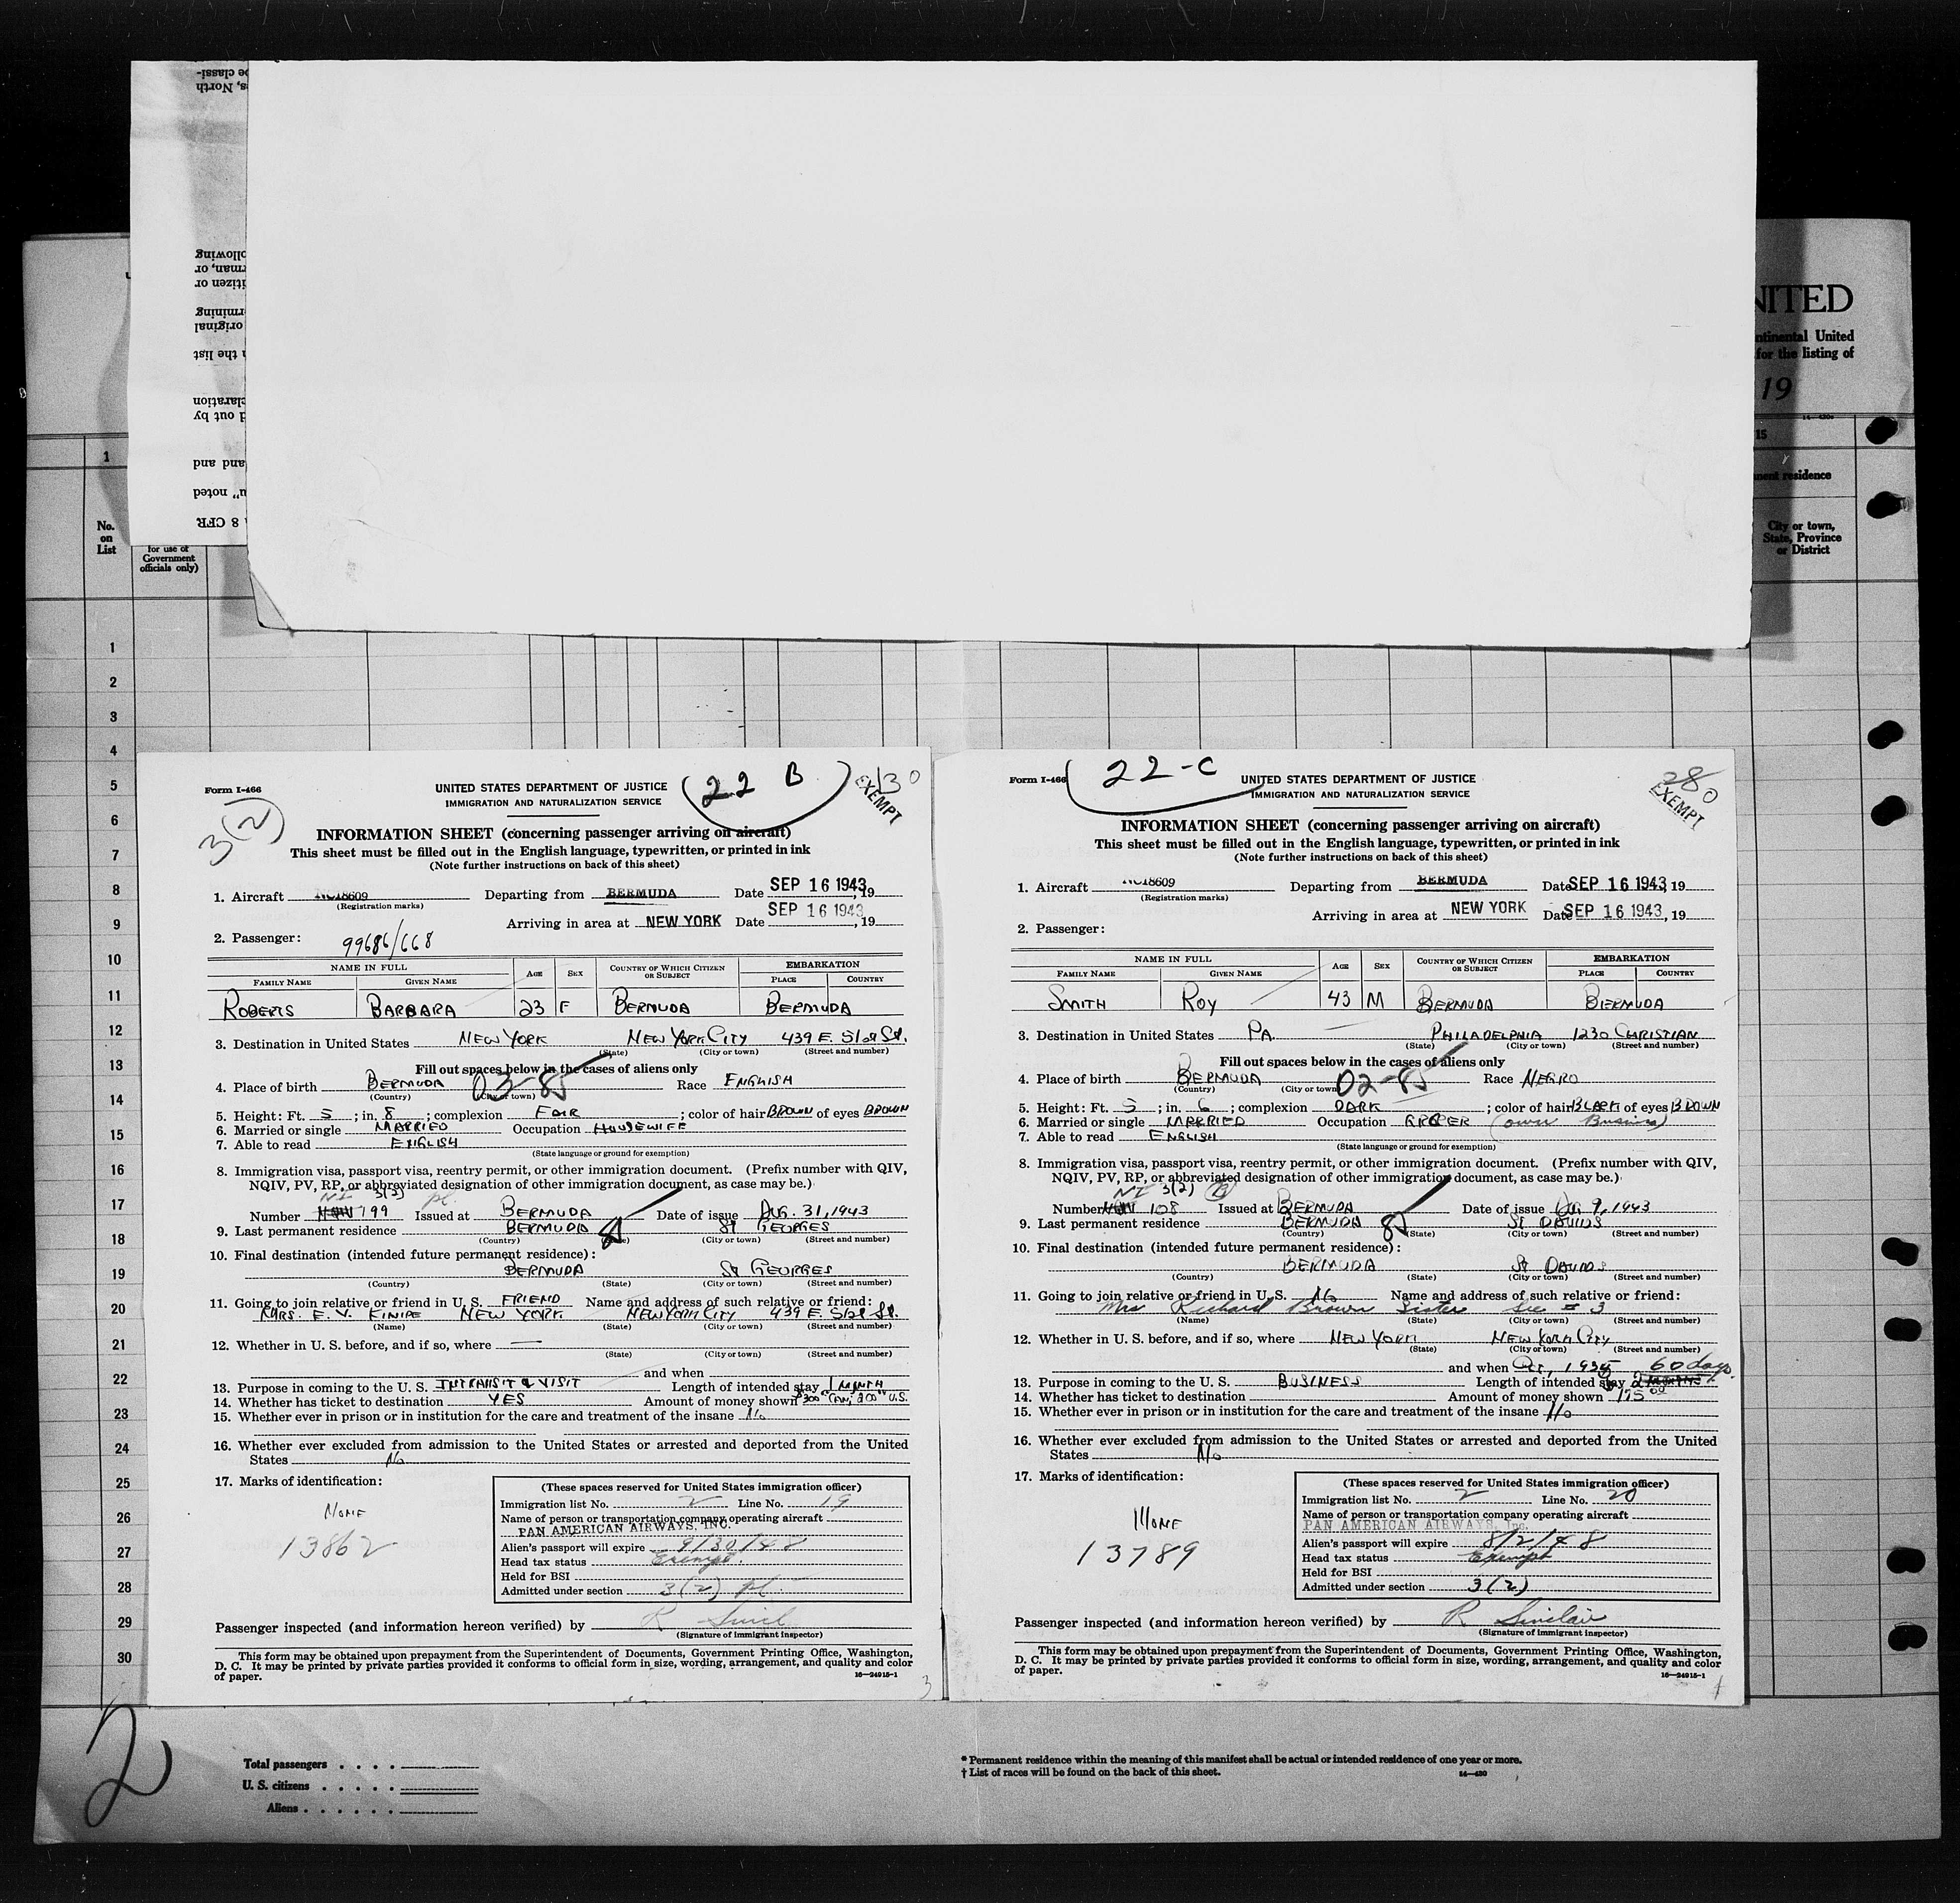 UNITED
Continental United
for the listing of
19
15
permanent residence
City or town,
State, Province
or District
1
No.
on
List
for use of
Government
officials only)
1
2
3
4
5
6
7
8
9
10
11
12
13
14
15
16
17
18
19
20
21
22
23
24
25
26
27
28
29
30
Form I-466
UNITED STATES DEPARTMENT OF JUSTICE
IMMIGRATION AND NATURALIZATION SERVICE
22 B
EXEMPT
3(2)
INFORMATION SHEET (concerning passenger arriving on aircraft)
This sheet must be filled out in the English language, typewritten, or printed in ink
(Note further instructions on back of this sheet)
1. Aircraft NC18609 Departing from BERMUDA Date SEP 16 1943, 19
(Registration marks)
Arriving in area at NEW YORK Date SEP 16 1943, 19
2. Passenger: 99686/668
NAME IN FULL AGE SEX COUNTRY OF WHICH CITIZEN OR SUBJECT EMBARKATION
FAMILY NAME GIVEN NAME PLACE COUNTRY
ROBERTS BARBARA 23 F BERMUDA BERMUDA
3. Destination in United States NEW YORK NEW YORK CITY 439 E. 51st St.
(State) (City or town) (Street and number)
Fill out spaces below in the cases of aliens only
4. Place of birth BERMUDA 02-85 Race ENGLISH
(Country) (City or town)
5. Height: Ft. 5; in. 8; complexion FAIR; color of hair BROWN of eyes BROWN
6. Married or single MARRIED Occupation HOUSEWIFE
7. Able to read ENGLISH
(State language or ground for exemption)
8. Immigration visa, passport visa, reentry permit, or other immigration document. (Prefix number with QIV,
NQIV, PV, RP, or abbreviated designation of other immigration document, as case may be.)
NI 3(2) pl
Number 799 Issued at BERMUDA Date of issue AUG. 31, 1943
9. Last permanent residence BERMUDA 85 St GEORGES
(Country) (State) (City or town) (Street and number)
10. Final destination (intended future permanent residence):
BERMUDA St GEORGES
(Country) (State) (City or town) (Street and number)
11. Going to join relative or friend in U. S. FRIEND Name and address of such relative or friend:
MRS. E. V. NEW YORK NEW YORK CITY 439 E. 51st St.
(Name) (State) (City or town) (Street and number)
12. Whether in U. S. before, and if so, where —
(State) (City or town) (Street and number)
and when
13. Purpose in coming to the U. S. INTRANSIT & VISIT Length of intended stay 1 MONTH
14. Whether has ticket to destination YES Amount of money shown $300 CAN; 200 U.S.
15. Whether ever in prison or in institution for the care and treatment of the insane No
16. Whether ever excluded from admission to the United States or arrested and deported from the United
States No
17. Marks of identification:
NONE
13862
(These spaces reserved for United States immigration officer)
Immigration list No. 2 Line No. 19
Name of person or transportation company operating aircraft
PAN AMERICAN AIRWAYS, INC.
Alien's passport will expire 9/30/48
Head tax status Exempt.
Held for BSI
Admitted under section 3(2) pl.
Passenger inspected (and information hereon verified) by R
(Signature of immigrant inspector)
This form may be obtained upon prepayment from the Superintendent of Documents, Government Printing Office, Washington,
D. C. It may be printed by private parties provided it conforms to official form in size, wording, arrangement, and quality and color
of paper.
16—24915-1
3
Form I-466
22-C
UNITED STATES DEPARTMENT OF JUSTICE
IMMIGRATION AND NATURALIZATION SERVICE
280
EXEMPT
INFORMATION SHEET (concerning passenger arriving on aircraft)
This sheet must be filled out in the English language, typewritten, or printed in ink
(Note further instructions on back of this sheet)
1. Aircraft NC18609 Departing from BERMUDA Date SEP 16 1943, 19
(Registration marks)
Arriving in area at NEW YORK Date SEP 16 1943, 19
2. Passenger:
NAME IN FULL AGE SEX COUNTRY OF WHICH CITIZEN OR SUBJECT EMBARKATION
FAMILY NAME GIVEN NAME PLACE COUNTRY
SMITH ROY 43 M BERMUDA BERMUDA
3. Destination in United States PA. PHILADELPHIA 1230 CHRISTIAN
(State) (City or town) (Street and number)
Fill out spaces below in the cases of aliens only
4. Place of birth BERMUDA 02-85 Race NEGRO
(Country) (City or town)
5. Height: Ft. 5; in. 6; complexion DARK; color of hair BLACK of eyes BROWN
6. Married or single MARRIED Occupation GROCER (own Business)
7. Able to read ENGLISH
(State language or ground for exemption)
8. Immigration visa, passport visa, reentry permit, or other immigration document. (Prefix number with QIV,
NQIV, PV, RP, or abbreviated designation of other immigration document, as case may be.)
NI 3(2)
Number 108 Issued at BERMUDA Date of issue 9, 1943
9. Last permanent residence BERMUDA 85 St DAVIDS
(Country) (State) (City or town) (Street and number)
10. Final destination (intended future permanent residence):
BERMUDA St DAVIDS
(Country) (State) (City or town) (Street and number)
11. Going to join relative or friend in U. S. No Name and address of such relative or friend:
Mrs Richard Brown Sister See # 3
(Name) (State) (City or town) (Street and number)
12. Whether in U. S. before, and if so, where NEW YORK NEW YORK CITY
(State) (City or town) (Street and number)
and when Oct, 1935 60 days.
13. Purpose in coming to the U. S. BUSINESS Length of intended stay 2 MONTHS.
14. Whether has ticket to destination Amount of money shown $175.00
15. Whether ever in prison or in institution for the care and treatment of the insane No
16. Whether ever excluded from admission to the United States or arrested and deported from the United
States No
17. Marks of identification:
NONE
13789
(These spaces reserved for United States immigration officer)
Immigration list No. 2 Line No. 20
Name of person or transportation company operating aircraft
PAN AMERICAN AIRWAYS, Inc.
Alien's passport will expire 8/2/48
Head tax status Exempt
Held for BSI
Admitted under section 3(2)
Passenger inspected (and information hereon verified) by R Sinclair
(Signature of immigrant inspector)
This form may be obtained upon prepayment from the Superintendent of Documents, Government Printing Office, Washington,
D. C. It may be printed by private parties provided it conforms to official form in size, wording, arrangement, and quality and color
of paper.
16—24915-1
2
Total passengers . . . .
U. S. citizens . . . . .
Aliens . . . . . .
* Permanent residence within the meaning of this manifest shall be actual or intended residence of one year or more.
† List of races will be found on the back of this sheet.